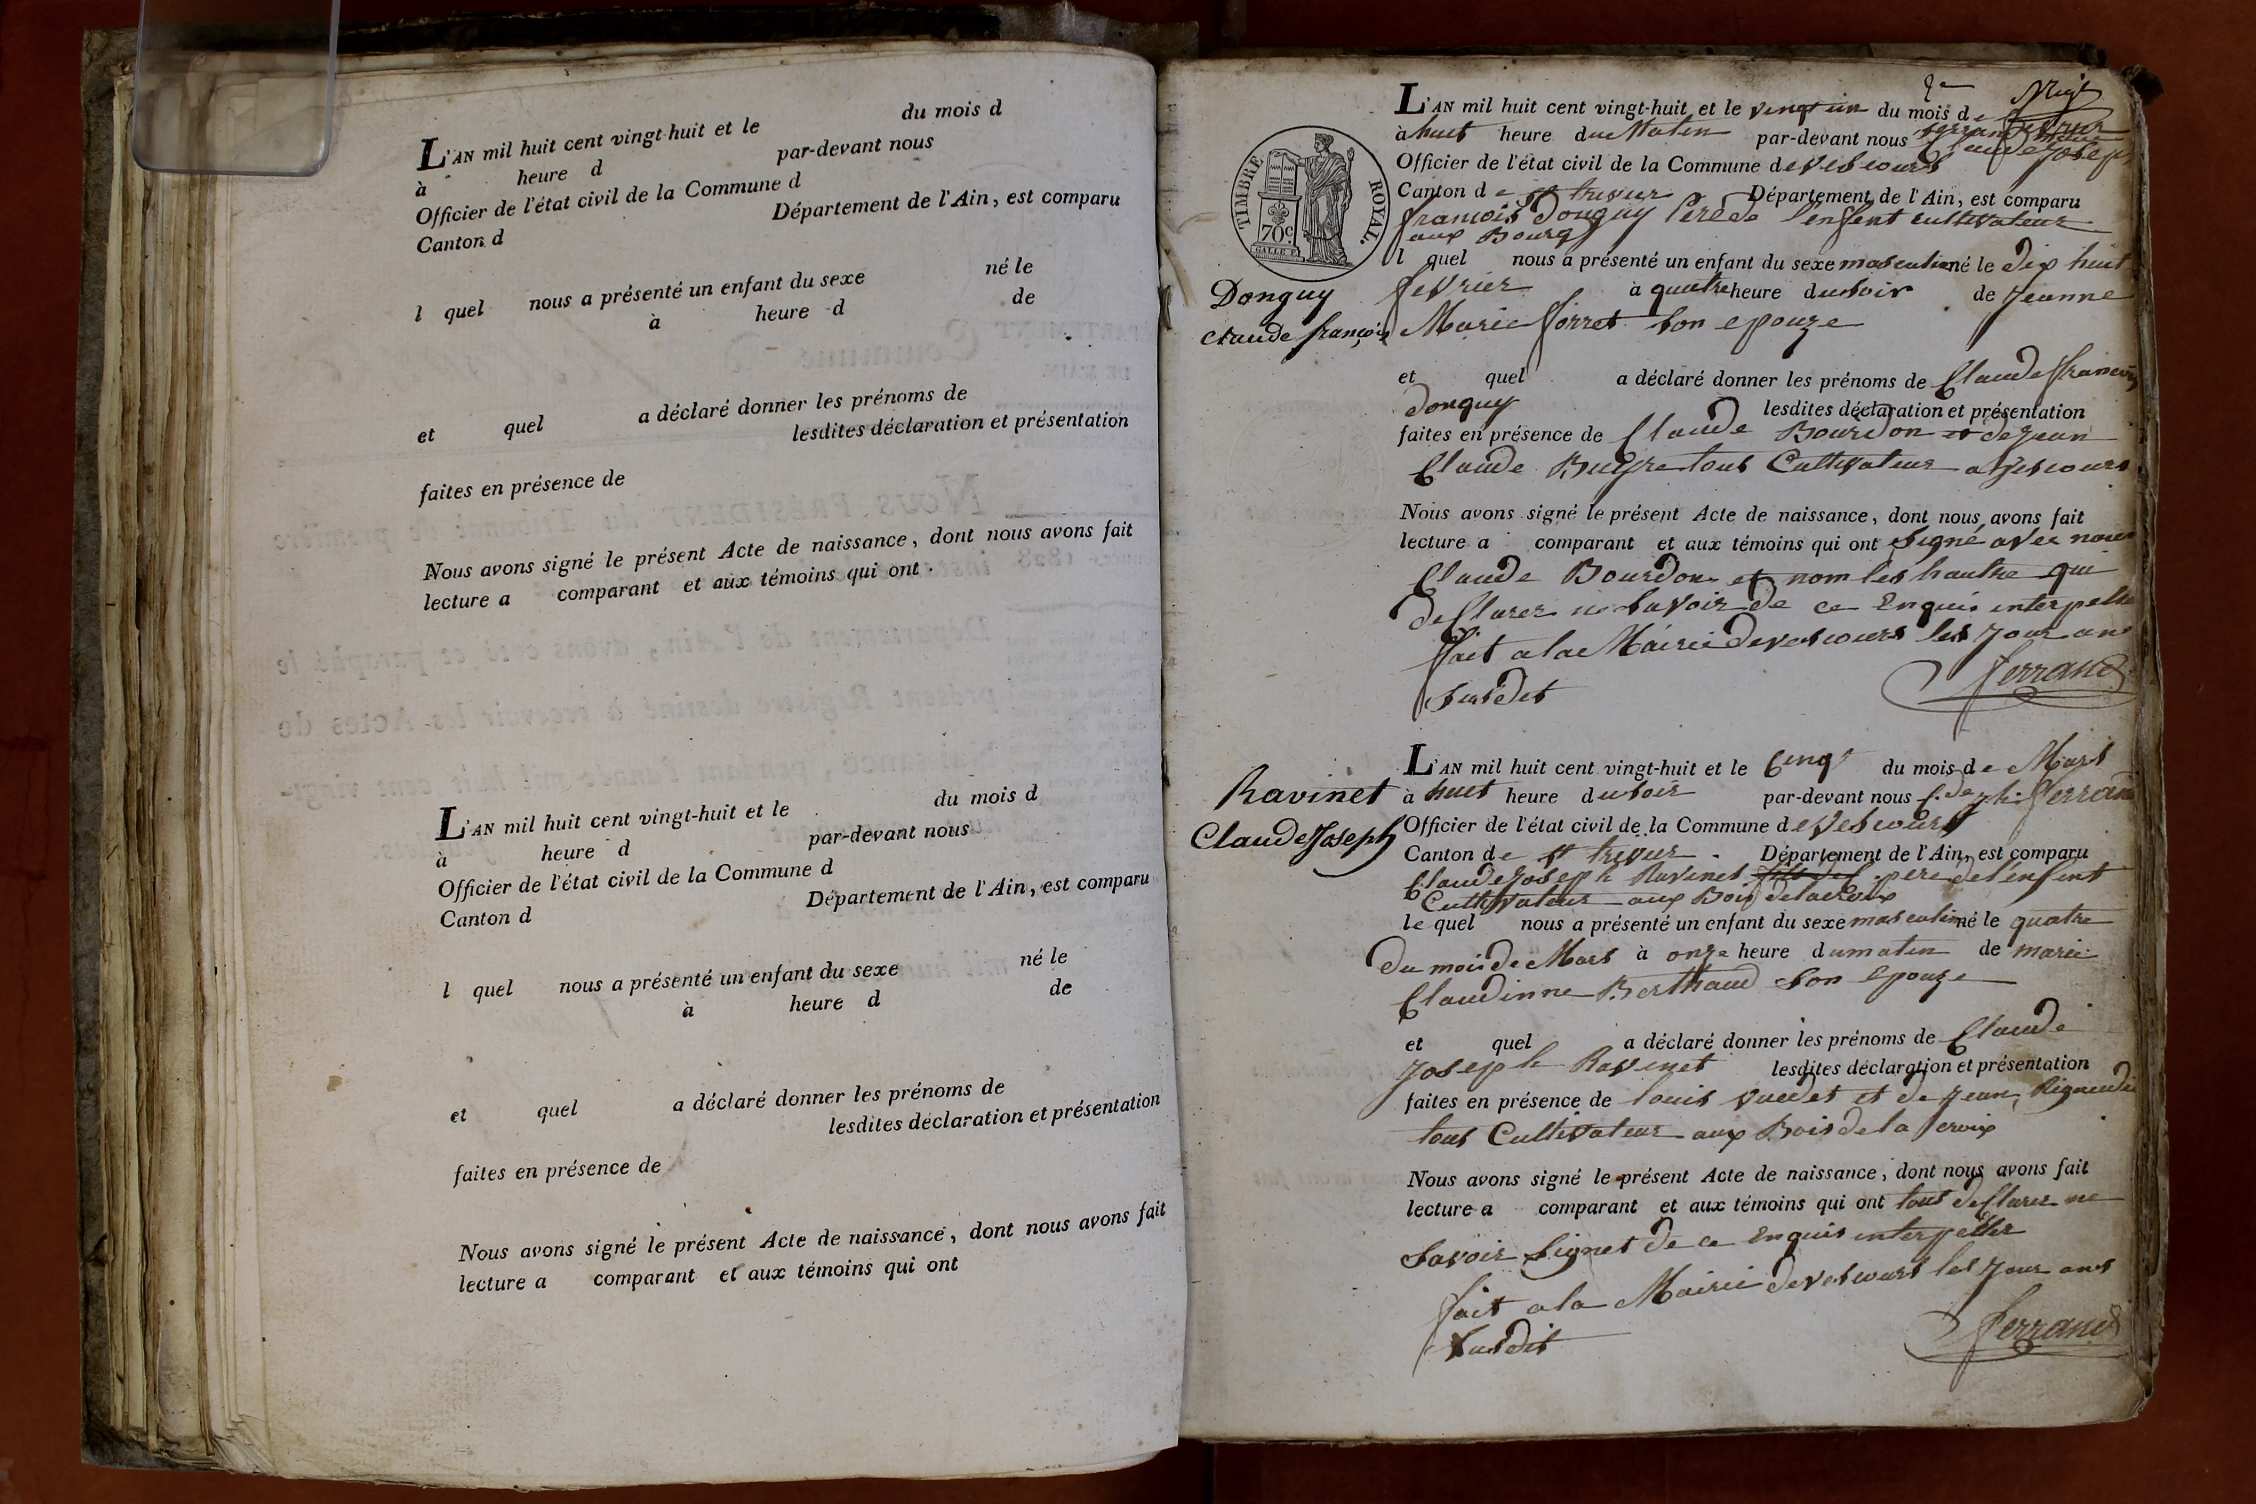 L'AN mil huit cent vingt-huit et le du mois d
à heure d par-devant nous
Officier de l'état civil de la Commune d
Canton d Département de l'Ain, est comparu
l quel nous a présenté un enfant du sexe né le
à heure d de
et quel a déclaré donner les prénoms de
lesdites déclaration et présentation
faites en présence de
Nous avons signé le présent Acte de naissance, dont nous avons fait
lecture a comparant et aux témoins qui ont.
L'AN mil huit cent vingt-huit et le du mois d
à heure d par-devant nous
Officier de l'état civil de la Commune d
Canton d Département de l'Ain, est comparu
l quel nous a présenté un enfant du sexe né le
à heure d de
et quel a déclaré donner les prénoms de
lesdites déclaration et présentation
faites en présence de
Nous avons signé le présent Acte de naissance, dont nous avons fait
lecture a comparant et aux témoins qui ont
L'AN mil huit cent vingt-huit et le vingt un du mois de fevrier
à huit heure du Matin par-devant nous ferrand Claude Joseph
Officier de l'état civil de la Commune de Vescours
Canton de st trivier Département de l'Ain, est comparu
francois Donguy Pere de l'enfent cultivateur
aux Bourg
l quel nous a présenté un enfant du sexe masculin né le dix huit
fevrier à quatre heure du soir de Jeanne
Marie forret son epouze
et quel a déclaré donner les prénoms de Claude francois
Donguy lesdites déclaration et présentation
faites en présence de Claude Bourdon et de Jean
Claude tous Cultivateur a Vescours
Nous avons signé le présent Acte de naissance, dont nous avons fait
lecture a comparant et aux témoins qui ont Signé avec nous
Claude Bourdon et nom les hautre qui
de Clarer ne Savoir de ce Enquis interpelle
fait a lae Mairie de vescours les Jour an
Susdit
ferrand
TIMBRE ROYAL.
70c.
Donguy
Claude françois
L'AN mil huit cent vingt-huit et le Cinq du mois de Mars
à huit heure du soir par-devant nous C.de jh. ferrand
Officier de l'état civil de la Commune de Vescours
Canton de st trivier Département de l'Ain, est comparu
Claude Joseph Ravinet pere de l'enfent
Cultivateur aux Bois de lacroix
le quel nous a présenté un enfant du sexe masculin né le quatre
du mois de Mars à onze heure du matin de marie
Claudinne Berthaud Son Epouze
et quel a déclaré donner les prénoms de Claude
Joseph Ravinet lesdites déclaration et présentation
faites en présence de louis vuedet et de Jean
tous Cultivateur aux Bois de la croix
Nous avons signé le présent Acte de naissance, dont nous avons fait
lecture a comparant et aux témoins qui ont tous de Clarer ne
Savoir Signet de ce Enquis interpeller
fait a la Mairie de vescours les Jour ans
Susdit
ferrand
Ravinet
Claude Joseph